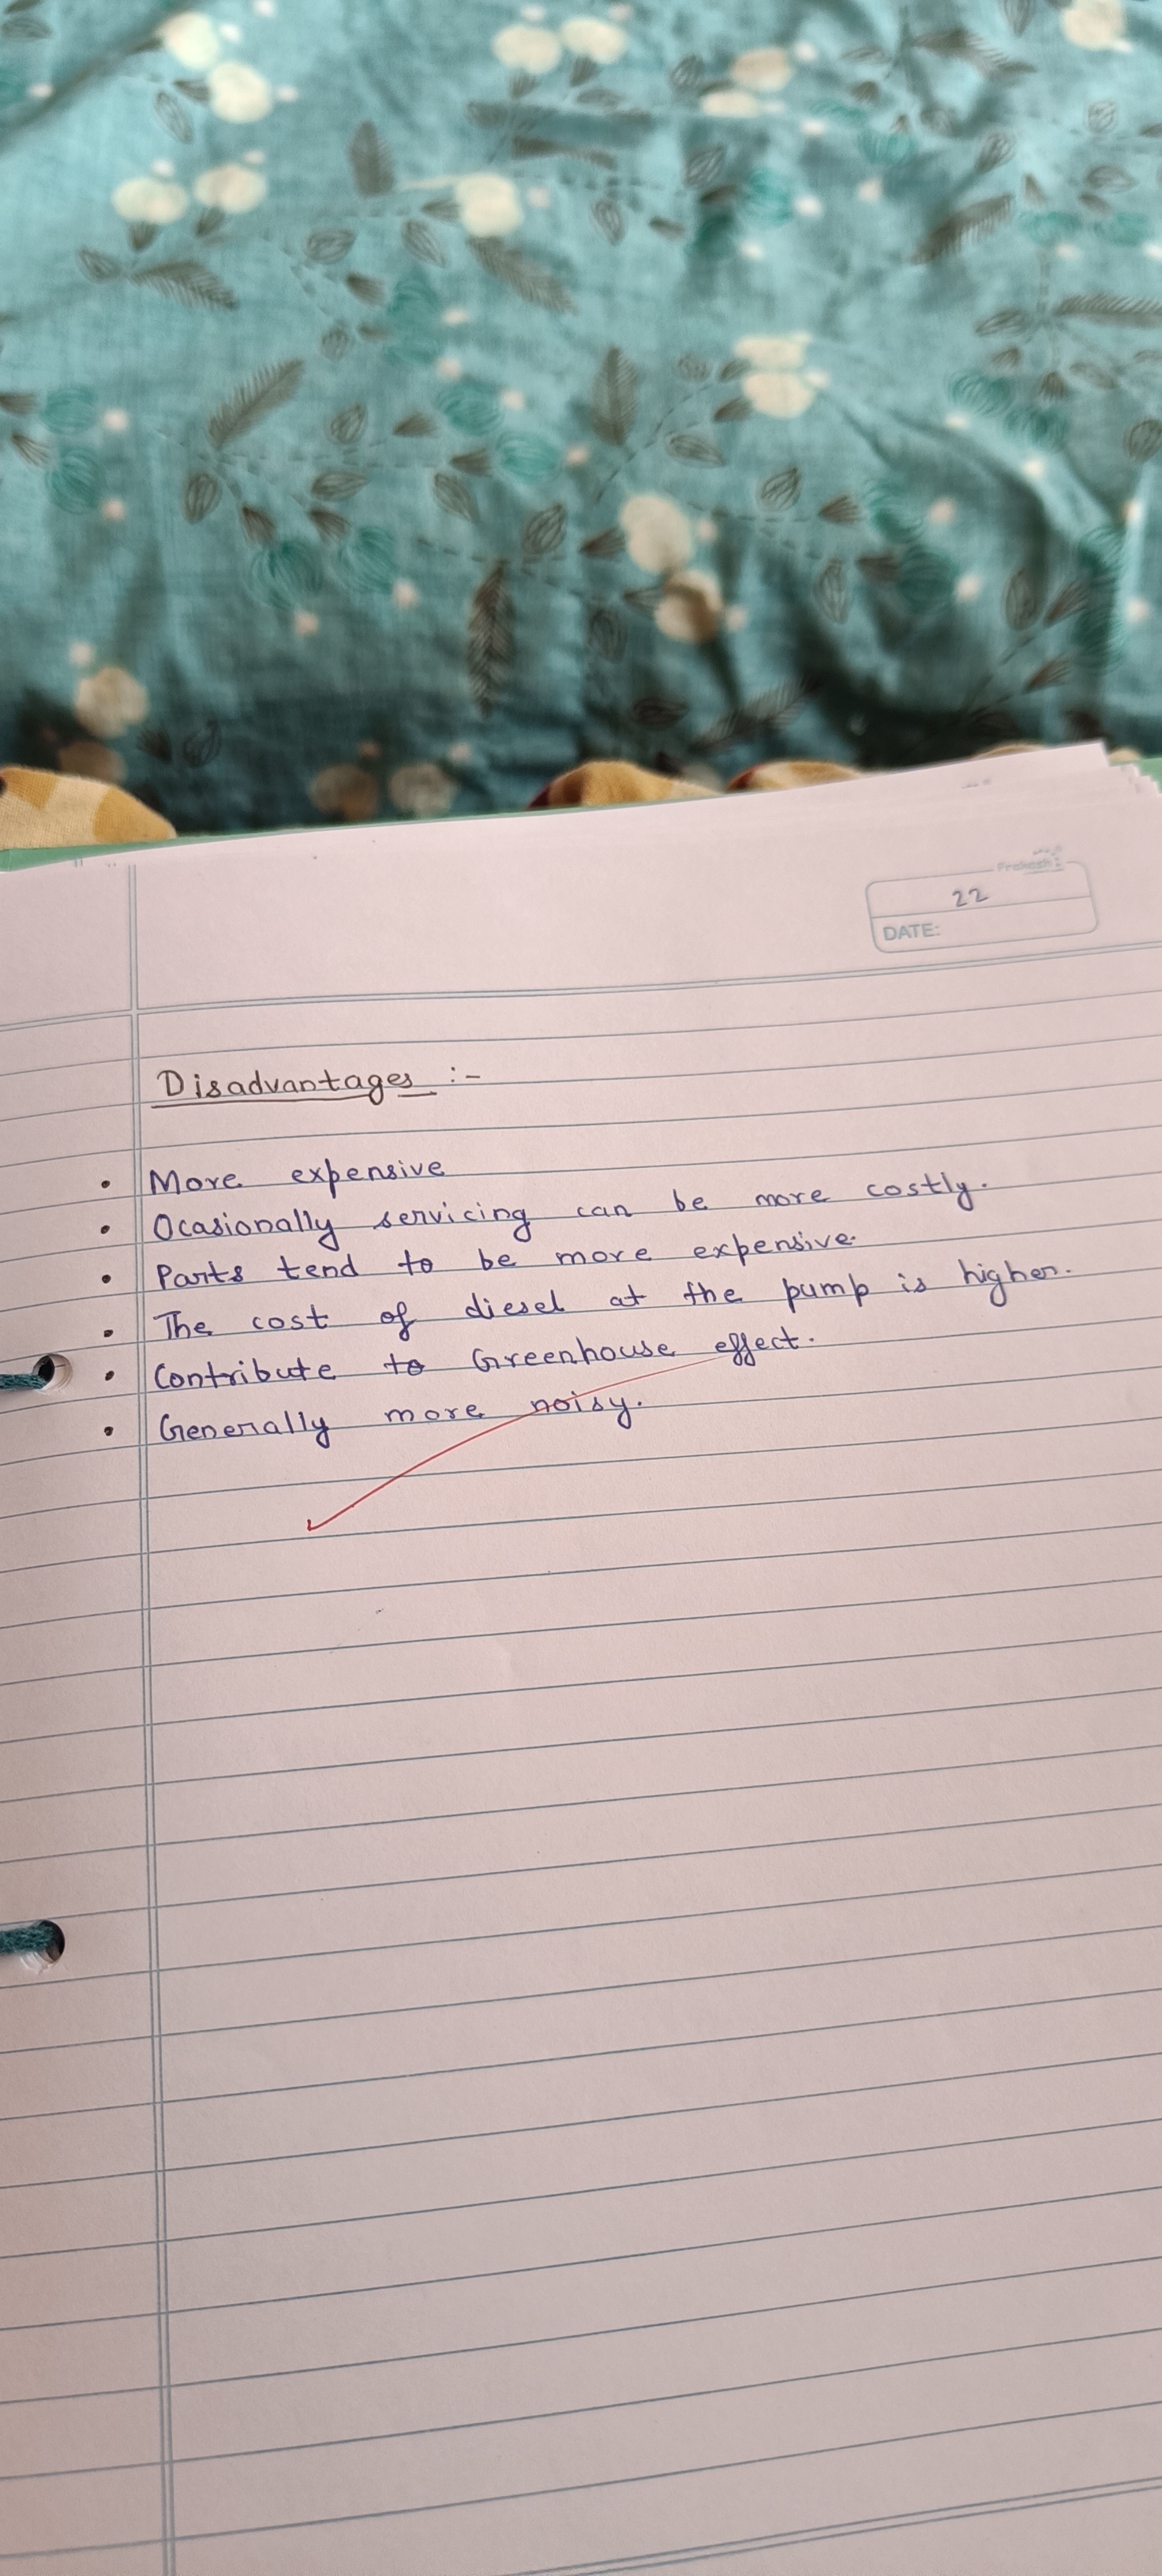 Prakash
22
DATE:
Disadvantages :-
• More expensive
• Ocasionally servicing can be more costly.
• Parts tend to be more expensive.
• The cost of diesel at the pump is higher.
• Contribute to Greenhouse effect.
• Generally more noisy.